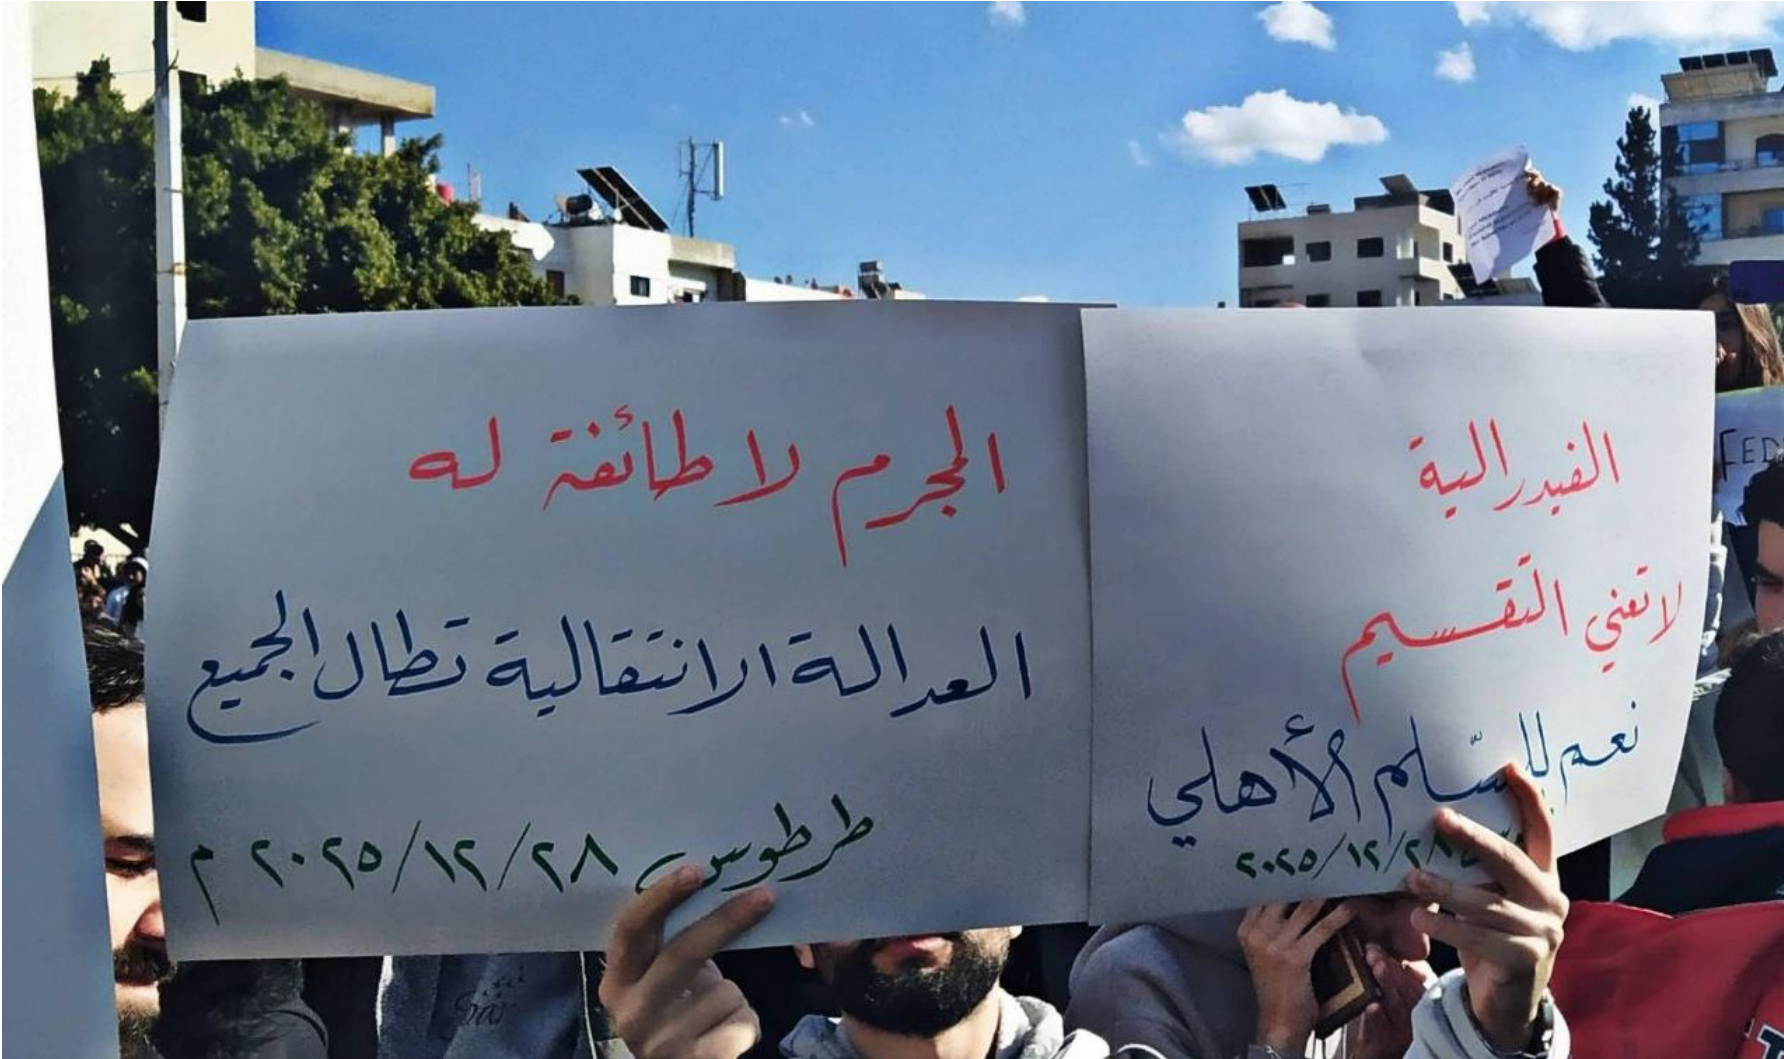 الفيدرالية
لا تعني التقسيم
نعم للسّلم الأهلي
٢٠٢٥/١٢/٢٨
المجرم لا طائفة له
العدالة الانتقالية تطال الجميع
طرطوس ٢٠٢٥/١٢/٢٨ م
FED